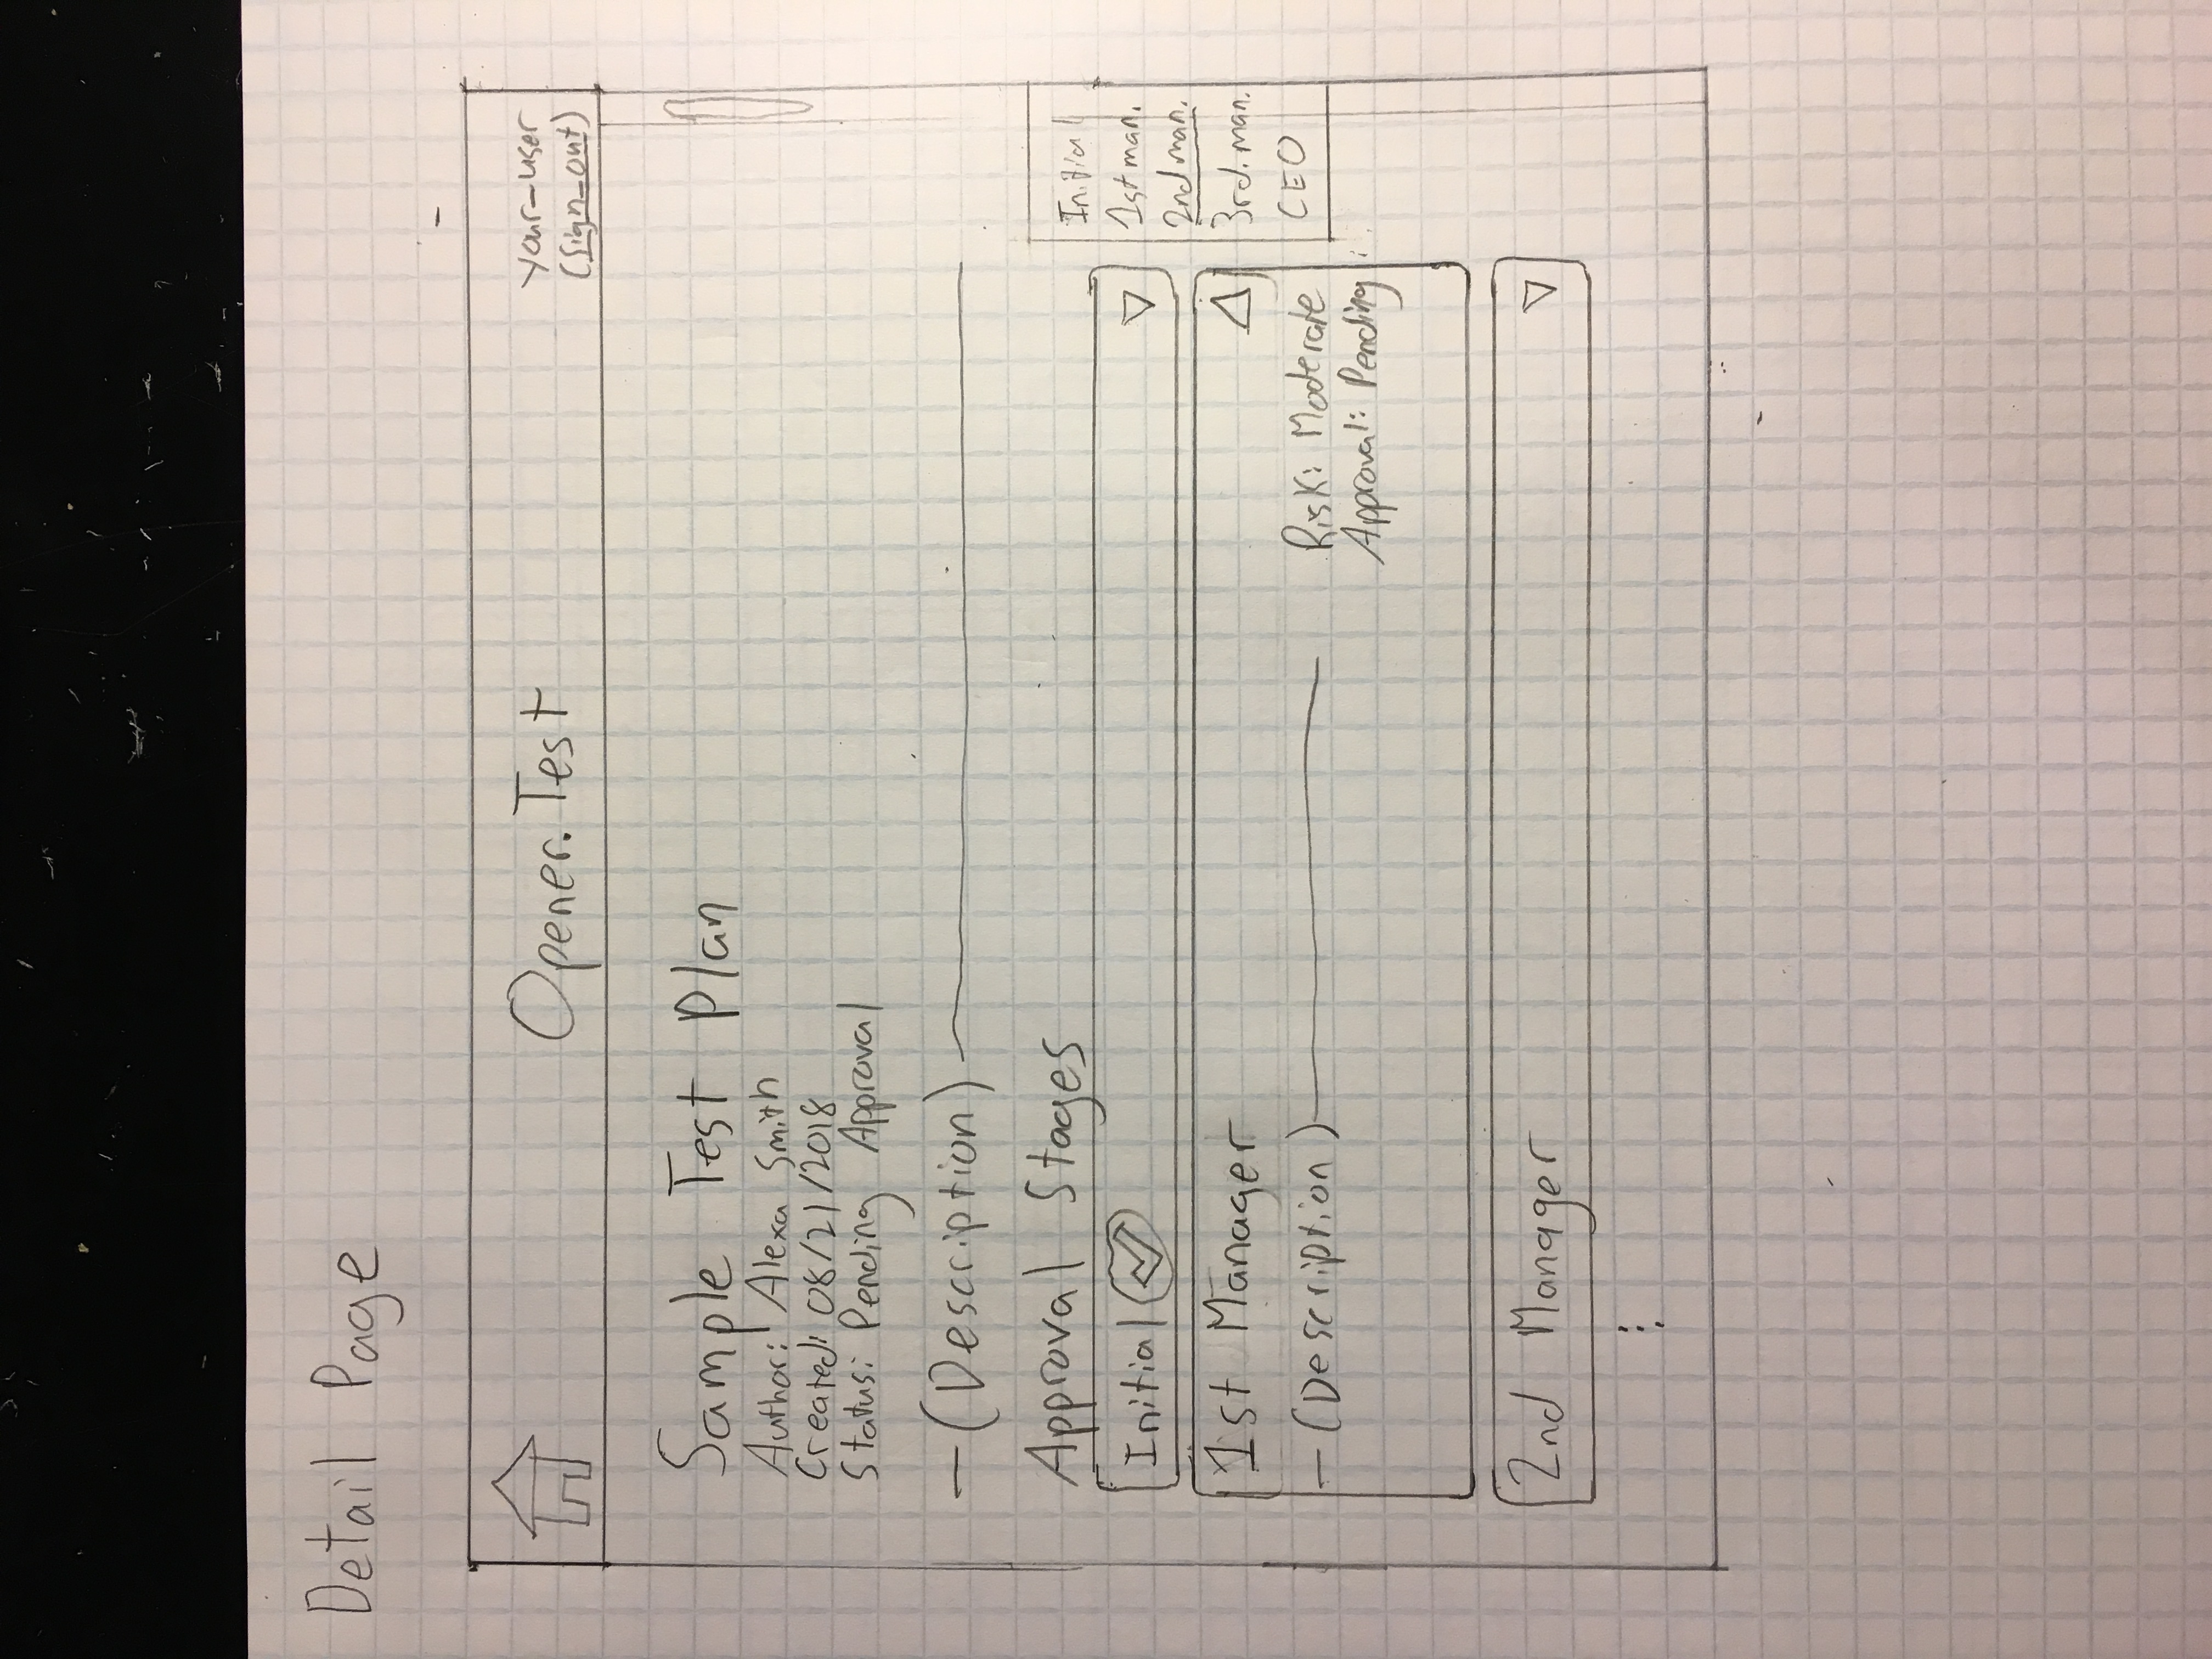 Detail Page
Opener.Test
your_user
(sign_out)
Sample Test Plan
Author: Alexa Smith
Created: 08/21/2018
Status: Pending Approval
(Description)
Approval Stages
Initial
1st Manager
(Description)
Risk: Moderate
Approval: Pending
2nd Manager
Initial
1st man.
2nd man.
3rd. man.
CEO